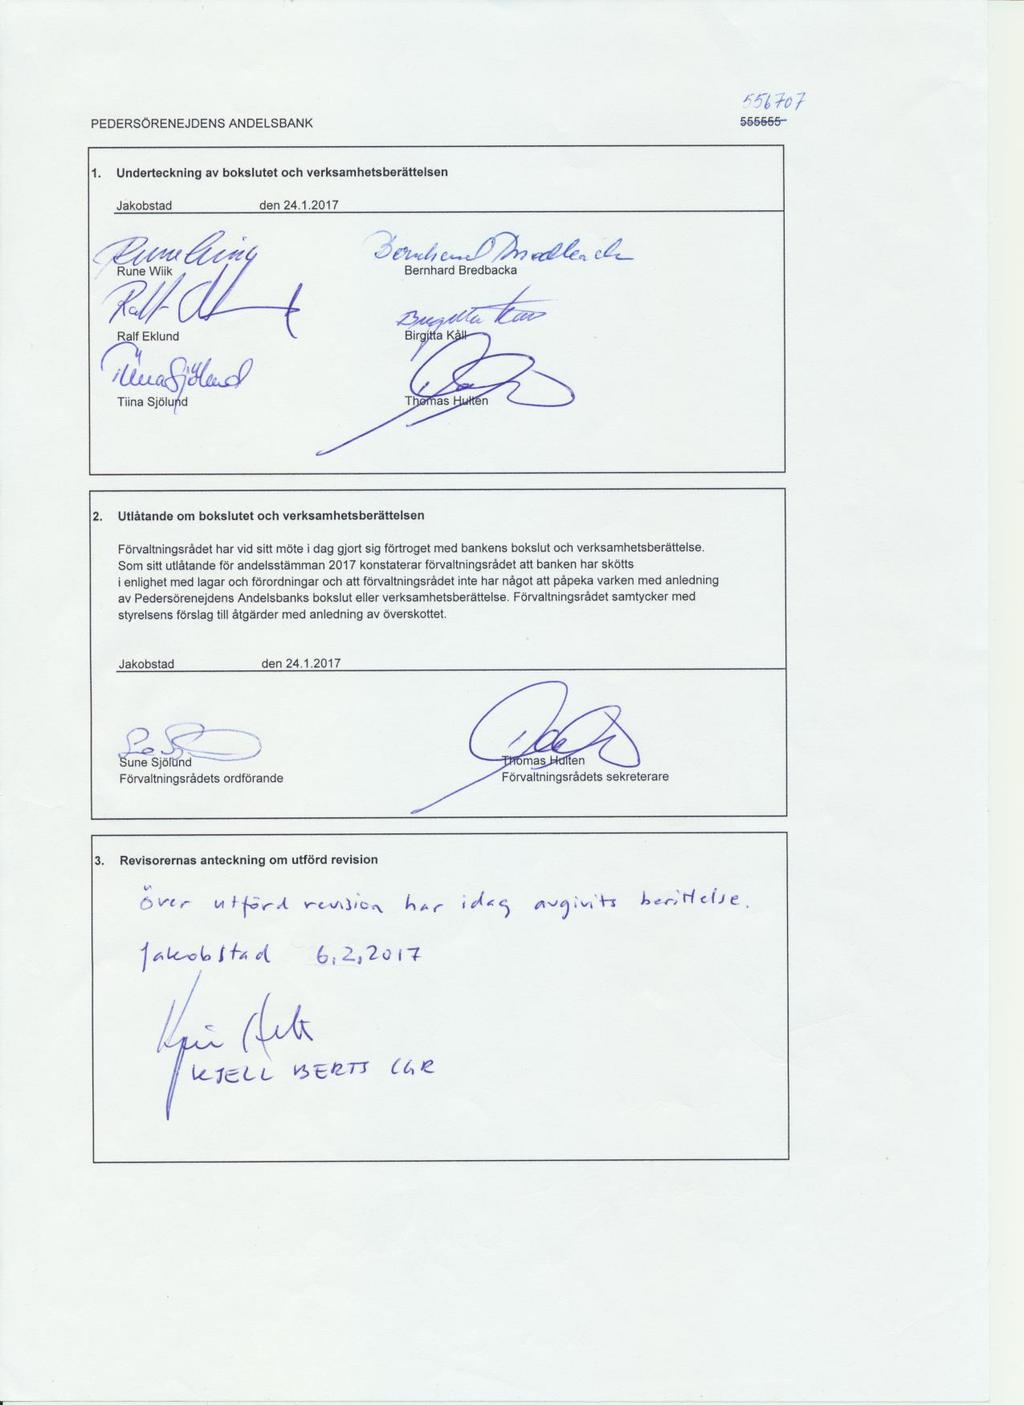 556707
PEDERSÖRENEJDENS ANDELSBANK 555555
1. Underteckning av bokslutet och verksamhetsberättelsen
Jakobstad den 24.1.2017
Rune Wiik Bernhard Bredbacka
Rune Wiik Bernhard Bredbacka
Ralf Birgitta Kåll
Ralf Eklund Birgitta Kåll
Tiina Sjölund
Tiina Sjölund Thomas Hulten
2. Utlåtande om bokslutet och verksamhetsberättelsen
Förvaltningsrådet har vid sitt möte i dag gjort sig förtroget med bankens bokslut och verksamhetsberättelse.
Som sitt utlåtande för andelsstämman 2017 konstaterar förvaltningsrådet att banken har skötts
i enlighet med lagar och förordningar och att förvaltningsrådet inte har något att påpeka varken med anledning
av Pedersörenejdens Andelsbanks bokslut eller verksamhetsberättelse. Förvaltningsrådet samtycker med
styrelsens förslag till åtgärder med anledning av överskottet.
Jakobstad den 24.1.2017
Sune Sjölund Thomas Hulten
Förvaltningsrådets ordförande Förvaltningsrådets sekreterare
3. Revisorernas anteckning om utförd revision
Över utförd revision har idag avgivits berättelse.
Jakobstad 6.2.2017
KJELL BERTS CGR